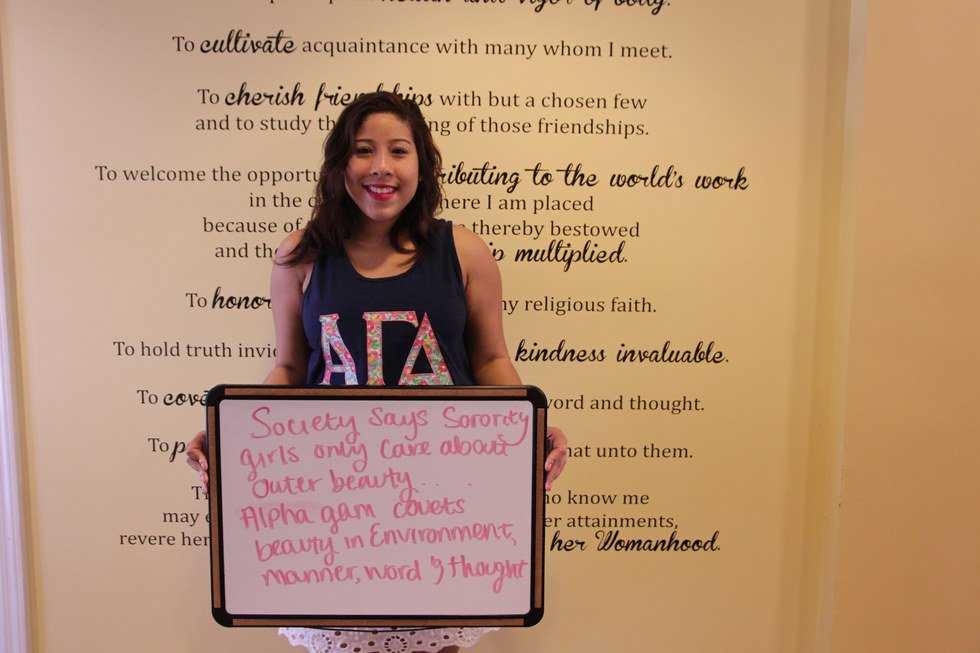 and vigor of body.
To cultivate acquaintance with many whom I meet.
To cherish friendships with but a chosen few
and to study the of those friendships.
To welcome the to the world's work
in the where I am placed
because of thereby bestowed
and the multiplied.
To honor my religious faith.
To hold truth kindness invaluable.
To word and thought.
To that unto them.
who know me
may attainments,
revere her her Womanhood.
ΑΓΔ
Society Says Sorority
girls only care about
outer beauty....
Alpha gam covets
beauty in Environment,
manner, word & thought